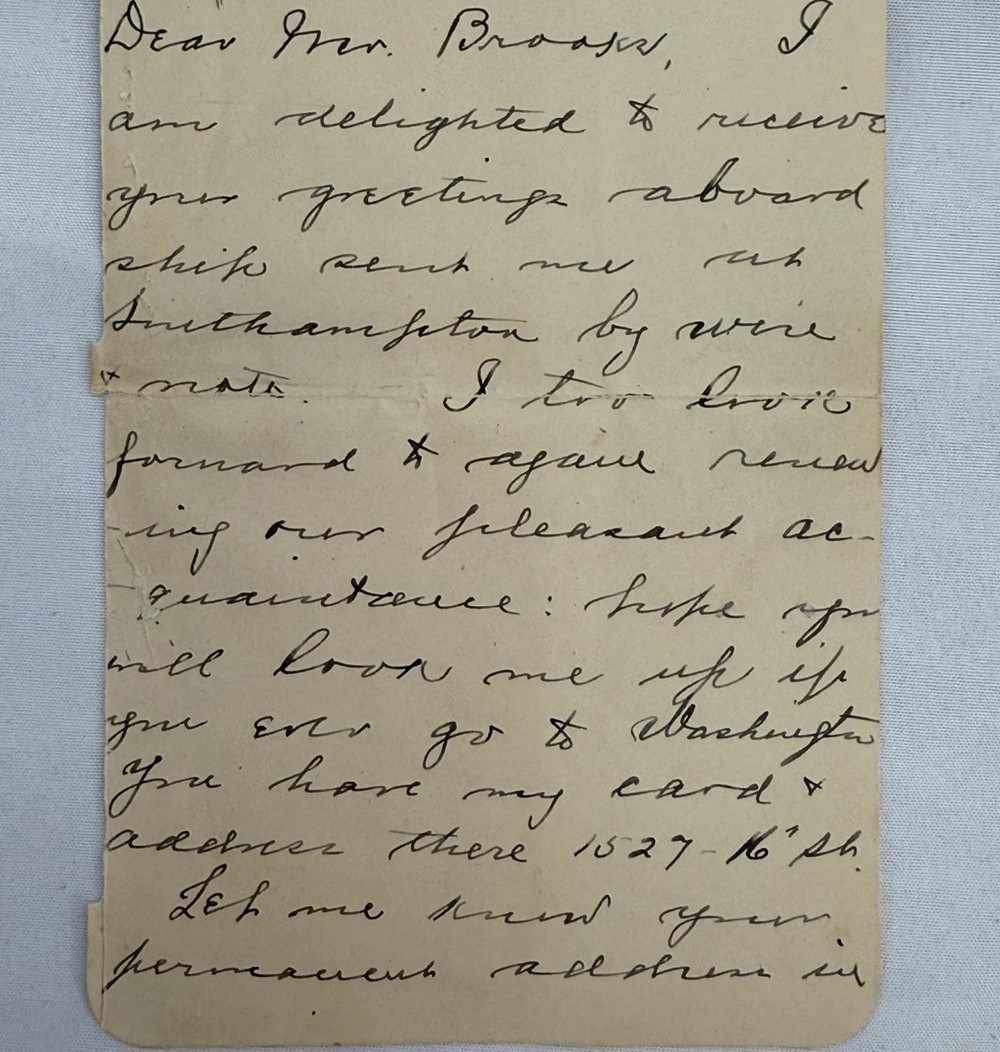 Dear Mr. Brooks, I
am delighted to receive
your greetings aboard
ship sent me at
Southampton by wire
& note. I too look
forward to again renew
-ing our pleasant ac-
quaintance: hope you
will look me up if
you ever go to Washington
You have my card &
address there 1527 - 16" St.
Let me know your
permanent address in